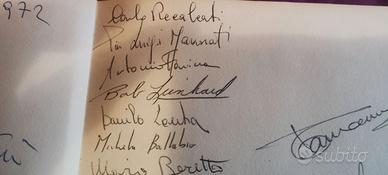 972
Carlo Recalcati
Pier Luigi Marzorati
Antonio Farina
Bob Lienhard
Danilo Zonta
Michele Ballabio
Beretta
subito